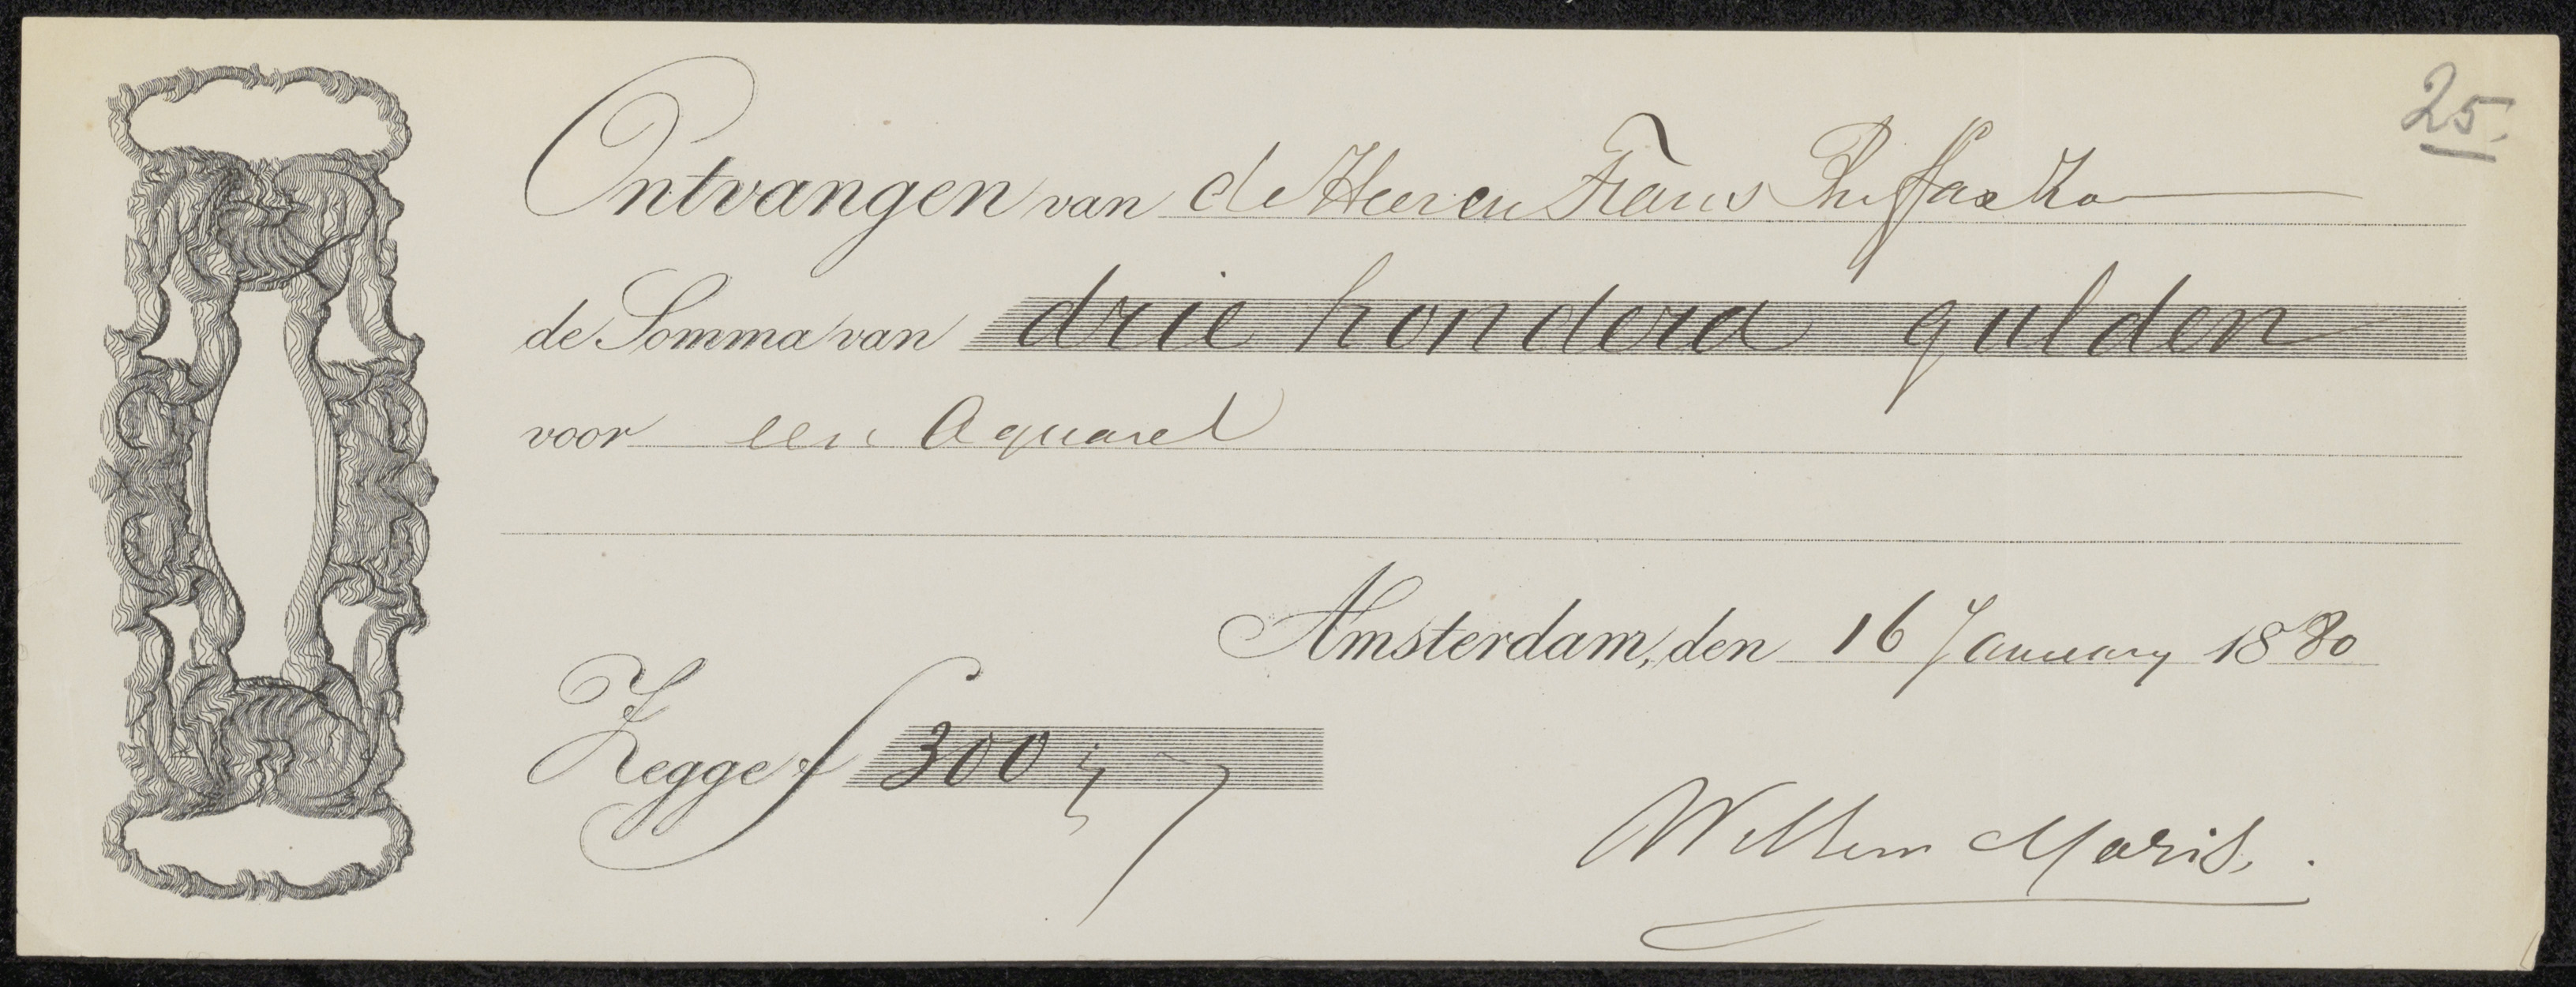 25.
Ontvangen van de Heeren Frans Buffa & Zo
de Somma van drie honderd gulden
voor een Aquarel
Amsterdam, den 16 January 1880
Zegge f 300
Willem Maris.